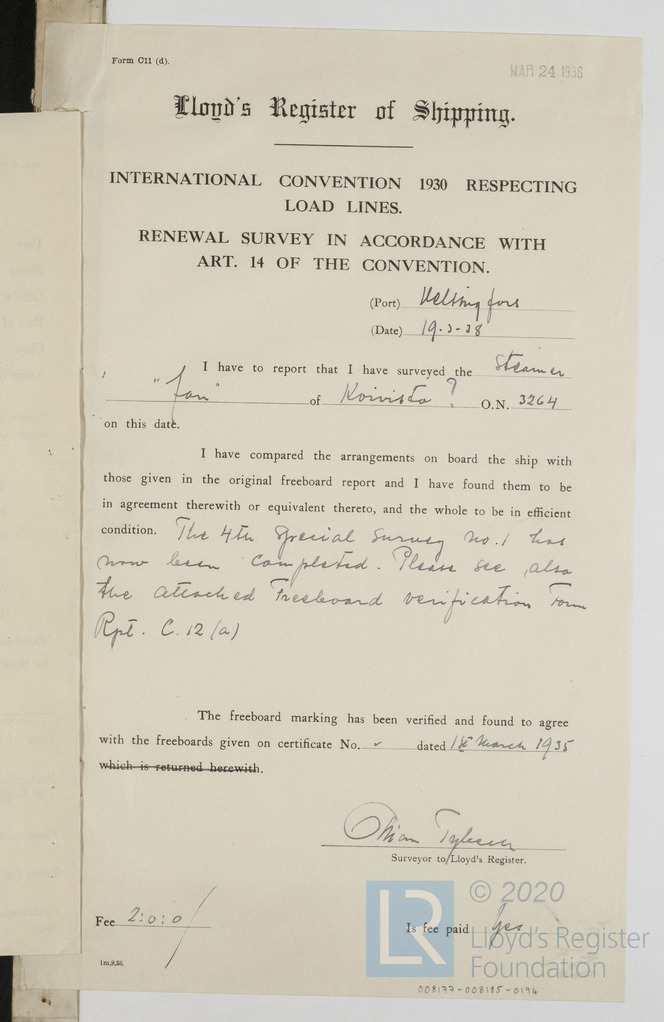 Form C11 (d).
MAR 24 1938
Lloyd's Register of Shipping.
INTERNATIONAL CONVENTION 1930 RESPECTING
LOAD LINES.
RENEWAL SURVEY IN ACCORDANCE WITH
ART. 14 OF THE CONVENTION.
(Port) Helsingfors
(Date) 19-3-38
I have to report that I have surveyed the Steamer
" Jan" of Koivisto ? O.N. 3264
on this date.
I have compared the arrangements on board the ship with
those given in the original freeboard report and I have found them to be
in agreement therewith or equivalent thereto, and the whole to be in efficient
condition. The 4th Special Survey No. 1 has
now been completed. Please see also
the attached Freeboard verification Form
Rpt. C. 12 (a)
The freeboard marking has been verified and found to agree
with the freeboards given on certificate No. dated 1st March 1935
which is returned herewith.
Surveyor to Lloyd's Register.
Fee 2:0:0
Is fee paid Yes
1m,9,36.
LR
© 2020
Lloyd's Register
Foundation
008177-008185-0194